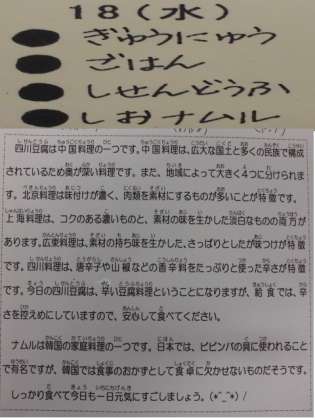 18(水)
ぎゅうにゅう
ごはん
しせんどうふ
しおナムル
四川豆腐は中国料理の一つです。中国料理は、広大な国土と多くの民族で構成
されているため奥が深い料理です。また、地域によって大きく4つに分けられま
す。北京料理は味付けが濃く、肉類を素材にするものが多いことが特徴です。
上海料理は、コクのある濃いものと、素材の味を生かした淡白なものの両方が
あります。広東料理は、素材の持ち味を生かした、さっぱりとしたが味つけが特徴
です。四川料理は、唐辛子や山椒などの香辛料をたっぷりと使った辛さが特徴
です。今日の四川豆腐は、辛い豆腐料理ということになりますが、給食では、辛
さを控えめにしていますので、安心して食べてください。
ナムルは韓国の家庭料理の一つです。日本では、ビビンバの具に使われること
で有名ですが、韓国では食事のおかずとして食卓に欠かせないものだそうです。
しっかり食べて今日も一日元気にすごしましょう。(*^_^*)/